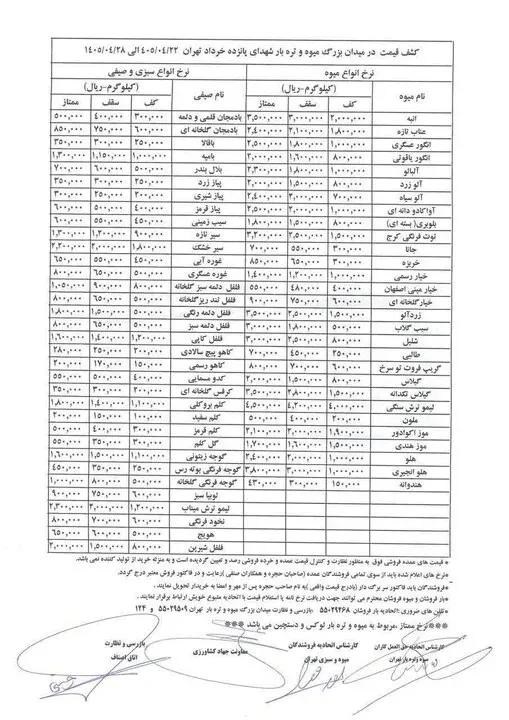 کشف قیمت در میدان بزرگ میوه و تره بار شهدای پانزده خرداد تهران ۴۰۵/۰۴/۲۲ الی ۱۴۰۵/۰۴/۲۸
نرخ انواع میوه نرخ انواع سبزی و صیفی
نام میوه (کیلوگرم-ریال) نام صیفی (کیلوگرم-ریال)
کف سقف ممتاز کف سقف ممتاز
انبه ۲,۰۰۰,۰۰۰ ۳,۰۰۰,۰۰۰ ۳,۵۰۰,۰۰۰ بادمجان قلمی و دلمه ۳۰۰,۰۰۰ ۴۰۰,۰۰۰ ۵۰۰,۰۰۰
عناب تازه ۱,۸۰۰,۰۰۰ ۲,۱۰۰,۰۰۰ ۲,۴۰۰,۰۰۰ بادمجان گلخانه ای ۶۰۰,۰۰۰ ۷۵۰,۰۰۰ ۸۵۰,۰۰۰
انگور عسگری ۱,۰۰۰,۰۰۰ ۱,۸۰۰,۰۰۰ ۲,۵۰۰,۰۰۰ باقالا ۲۵۰,۰۰۰ ۳۰۰,۰۰۰ ۳۵۰,۰۰۰
انگور یاقوتی ۸۰۰,۰۰۰ ۱,۶۰۰,۰۰۰ ۲,۰۰۰,۰۰۰ بامیه ۱,۰۰۰,۰۰۰ ۱,۱۵۰,۰۰۰ ۱,۳۰۰,۰۰۰
آلبالو ۱,۰۰۰,۰۰۰ ۱,۷۰۰,۰۰۰ ۲,۰۰۰,۰۰۰ بلال بندر ۵۰۰,۰۰۰ ۶۰۰,۰۰۰ ۷۰۰,۰۰۰
آلو زرد ۸۰۰,۰۰۰ ۱,۵۰۰,۰۰۰ ۲,۰۰۰,۰۰۰ پیاز زرد ۲۵۰,۰۰۰ ۳۰۰,۰۰۰ ۳۵۰,۰۰۰
آلو سیاه ۷۰۰,۰۰۰ ۲,۰۰۰,۰۰۰ ۲,۴۰۰,۰۰۰ پیاز شیری ۲۰۰,۰۰۰ ۲۵۰,۰۰۰ ۳۰۰,۰۰۰
آواکادو دانه ای ۱,۰۰۰,۰۰۰ ۲,۰۰۰,۰۰۰ ۲,۵۰۰,۰۰۰ پیاز قرمز ۴۰۰,۰۰۰ ۵۰۰,۰۰۰ ۶۰۰,۰۰۰
بلوبری( بسته ای) ۱,۰۰۰,۰۰۰ ۱,۵۰۰,۰۰۰ ۱,۸۰۰,۰۰۰ سیب زمینی ۴۵۰,۰۰۰ ۵۵۰,۰۰۰ ۶۰۰,۰۰۰
توت فرنگی کرج ۱,۵۰۰,۰۰۰ ۲,۵۰۰,۰۰۰ ۳,۲۰۰,۰۰۰ سیر تازه ۹۰۰,۰۰۰ ۱,۲۰۰,۰۰۰ ۱,۳۰۰,۰۰۰
جانا ۳۰۰,۰۰۰ ۵۵۰,۰۰۰ ۷۰۰,۰۰۰ سیر خشک ۱,۸۰۰,۰۰۰ ۲,۰۰۰,۰۰۰ ۲,۲۰۰,۰۰۰
خربزه ۳۰۰,۰۰۰ ۶۵۰,۰۰۰ ۸۵۰,۰۰۰ غوره آبی ۴۵۰,۰۰۰ ۵۵۰,۰۰۰ ۶۵۰,۰۰۰
خیار رسمی ۱,۰۰۰,۰۰۰ ۱,۲۰۰,۰۰۰ ۱,۴۰۰,۰۰۰ غوره عسگری ۵۰۰,۰۰۰ ۶۵۰,۰۰۰ ۸۰۰,۰۰۰
خیار مینی اصفهان ۴۰۰,۰۰۰ ۴۸۰,۰۰۰ ۵۵۰,۰۰۰ فلفل دلمه سبز گلخانه ۸۰۰,۰۰۰ ۹۰۰,۰۰۰ ۱,۰۵۰,۰۰۰
خیارگلخانه ای ۶۰۰,۰۰۰ ۷۵۰,۰۰۰ ۹۰۰,۰۰۰ فلفل تند ریزگلخانه ۵۰۰,۰۰۰ ۶۵۰,۰۰۰ ۸۰۰,۰۰۰
زردآلو ۱,۵۰۰,۰۰۰ ۲,۵۰۰,۰۰۰ ۳,۵۰۰,۰۰۰ فلفل دلمه رنگی ۱,۰۰۰,۰۰۰ ۱,۵۰۰,۰۰۰ ۱,۸۰۰,۰۰۰
سیب گلاب ۸۰۰,۰۰۰ ۱,۸۰۰,۰۰۰ ۳,۰۰۰,۰۰۰ فلفل دلمه سبز ۵۰۰,۰۰۰ ۶۵۰,۰۰۰ ۸۰۰,۰۰۰
شلیل ۸۰۰,۰۰۰ ۲,۵۰۰,۰۰۰ ۳,۰۰۰,۰۰۰ فلفل کاپی ۱,۲۰۰,۰۰۰ ۱,۴۰۰,۰۰۰ ۱,۶۰۰,۰۰۰
طالبی ۲۵۰,۰۰۰ ۴۵۰,۰۰۰ ۷۰۰,۰۰۰ کاهو پیچ سالادی ۲۰۰,۰۰۰ ۲۵۰,۰۰۰ ۲۸۰,۰۰۰
گریپ فروت تو سرخ ۶۰۰,۰۰۰ ۷۰۰,۰۰۰ ۸۰۰,۰۰۰ کاهو رسمی ۱۵۰,۰۰۰ ۱۷۰,۰۰۰ ۲۰۰,۰۰۰
گیلاس ۱,۰۰۰,۰۰۰ ۱,۵۰۰,۰۰۰ ۲,۰۰۰,۰۰۰ کدو مسمایی ۴۰۰,۰۰۰ ۵۰۰,۰۰۰ ۵۵۰,۰۰۰
گیلاس تکدانه ۱,۵۰۰,۰۰۰ ۲,۸۰۰,۰۰۰ ۳,۵۰۰,۰۰۰ کرفس گلخانه ای ۲۰۰,۰۰۰ ۳۰۰,۰۰۰ ۳۵۰,۰۰۰
لیمو ترش سنگی ۴,۰۰۰,۰۰۰ ۴,۲۰۰,۰۰۰ ۴,۵۰۰,۰۰۰ کلم بروکلی ۱,۱۰۰,۰۰۰ ۱,۴۰۰,۰۰۰ ۱,۸۰۰,۰۰۰
ملون ۲۰۰,۰۰۰ ۴۰۰,۰۰۰ ۵۰۰,۰۰۰ کلم سفید ۱۰۰,۰۰۰ ۱۵۰,۰۰۰ ۲۰۰,۰۰۰
موز اکوادور ۱,۹۰۰,۰۰۰ ۲,۰۰۰,۰۰۰ ۲,۱۰۰,۰۰۰ کلم قرمز ۳۰۰,۰۰۰ ۴۰۰,۰۰۰ ۵۰۰,۰۰۰
موز هندی ۱,۵۰۰,۰۰۰ ۱,۶۰۰,۰۰۰ ۱,۷۰۰,۰۰۰ گل کلم ۳۰۰,۰۰۰ ۴۵۰,۰۰۰ ۵۵۰,۰۰۰
هلو ۱,۰۰۰,۰۰۰ ۲,۰۰۰,۰۰۰ ۲,۵۰۰,۰۰۰ گوجه زیتونی ۱,۱۰۰,۰۰۰ ۱,۵۰۰,۰۰۰ ۱,۶۰۰,۰۰۰
هلو انجیری ۱,۰۰۰,۰۰۰ ۳,۰۰۰,۰۰۰ ۳,۸۰۰,۰۰۰ گوجه فرنگی بوته رس ۲۵۰,۰۰۰ ۳۵۰,۰۰۰ ۴۵۰,۰۰۰
هندوانه ۱۵۰,۰۰۰ ۳۰۰,۰۰۰ ۴۳۰,۰۰۰ گوجه فرنگی گلخانه ۵۰۰,۰۰۰ ۸۰۰,۰۰۰ ۱,۰۰۰,۰۰۰
لوبیا سبز ۶۰۰,۰۰۰ ۷۵۰,۰۰۰ ۹۰۰,۰۰۰
لیمو ترش میناب ۱,۲۰۰,۰۰۰ ۲,۰۰۰,۰۰۰ ۲,۳۰۰,۰۰۰
نخود فرنگی ۶۰۰,۰۰۰ ۷۰۰,۰۰۰ ۸۰۰,۰۰۰
هویج ۵۰۰,۰۰۰ ۶۰۰,۰۰۰ ۶۵۰,۰۰۰
فلفل شیرین ۸۰۰,۰۰۰ ۱,۵۰۰,۰۰۰ ۲,۰۰۰,۰۰۰
* قیمت های عمده فروشی فوق به منظور نظارت و کنترل قیمت عمده و خرده فروشی رصد و تعیین گردیده است و به منزله خرید از تولید کننده نمی باشد.
*نرخ های اعلام شده باید از سوی تمامی فروشندگان عمده (صاحبان حجره و همکاران صنفی )رعایت و در فاکتور فروش معتبر درج گردد.
*فروشندگان باید فاکتور سر برگ دار (بادرج قیمت واقعی )به نام خریدار پس از مهر و امضا به خریدار تحویل نمایند .
*بار فروشان و میوه فروشان محترم می توانند جهت دریافت نرخ نامه یا استعلام قیمت با اتحادیه متبوع خویش ارتباط برقرار نمایند .
*تلفن های ضروری : اتحادیه بار فروشان ۵۵۰۲۹۴۶۸ -بازرسی و نظارت میدان بزرگ میوه و تره بار تهران ۵۵۰۲۹۵۰۹ و ۱۲۴
***نرخ ممتاز ،مربوط به میوه و تره بار لوکس و دستچین می باشد ***
کارشناس اتحادیه حق العمل کاران کارشناس اتحادیه فروشندگان معاونت جهاد کشاورزی بازرسی و نظارت
میوه وتره بار تهران میوه و سبزی تهران اتاق اصناف